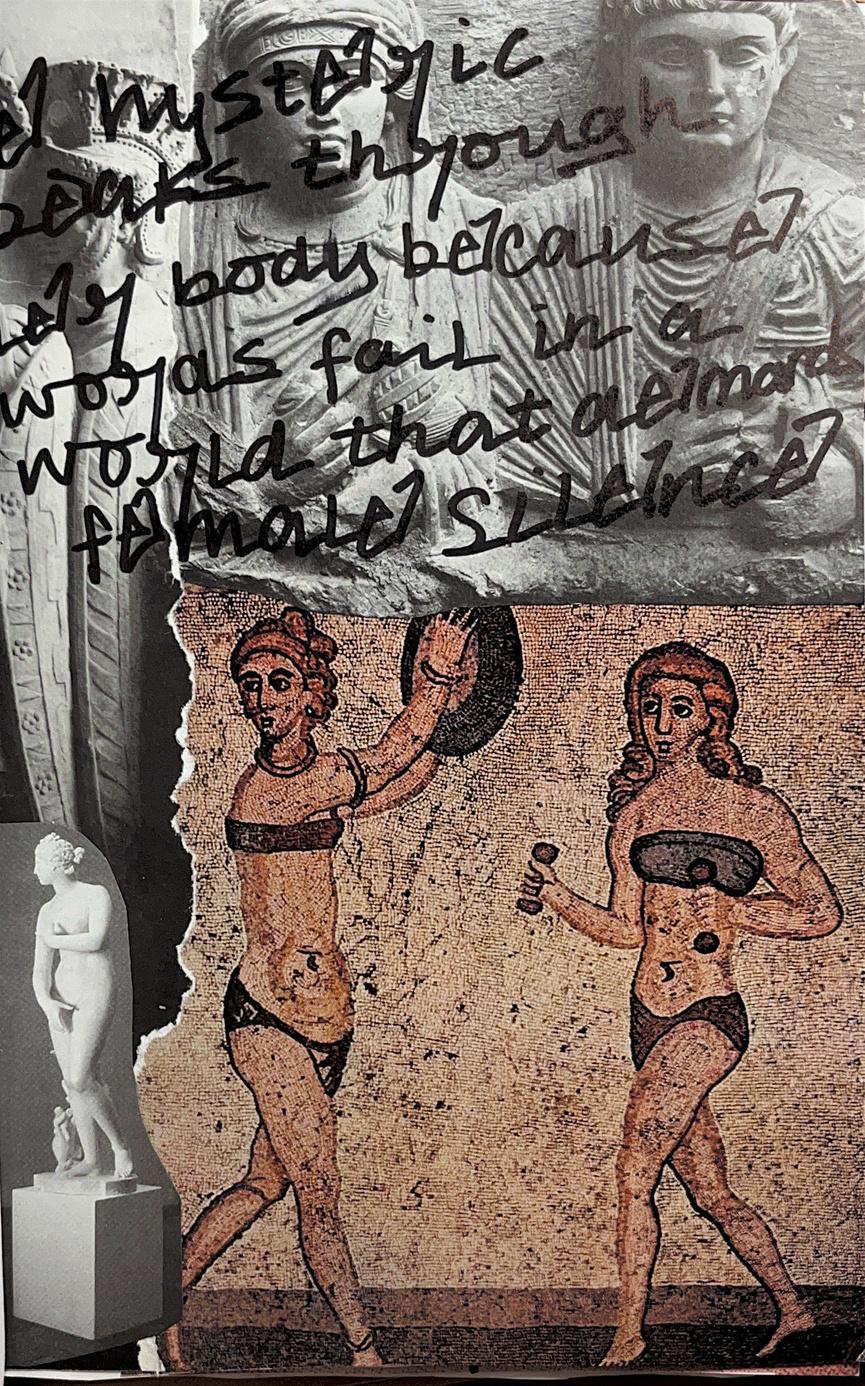 e hysteric
peaks through
her body because
words fail in a
world that demands
female silence